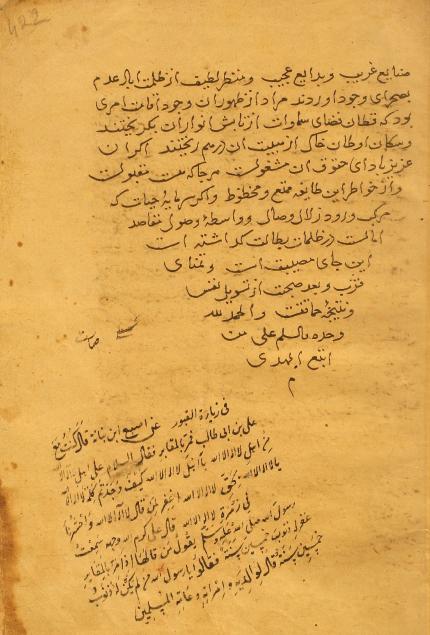 422
صنایع غریب و بدایع عجیب و منتظر لطیف از ظلمت اباد عدم
بصحرای وجود اوردند مراد از ظهور ان وجود افات امری
بود که قطان فضای سماوات از تابش انوار ان بکریختند
و سکان اوطان خاک از هیبت ان درهم ریختند اکر ان
عزیز بادای حقوق ان مشغولست مرحبا که بس مقبولست
و از خواطر این طایفه ممتع و محظوظ و اکر سرمایهٔ حیات که
مرکب ورود زلال وصال و واسطهٔ وصول مقاصد
امالست در ظلمات بطالت کذاشته است
این جای مصیبت است و تمنای
قرب و بعد صحبت از تسویل نفس
و نتیجهٔ حماقت والحمد لله
وحده والسلم علی من
اتبع الهدی
م
فی زیارة القبور عن اصبغ ابن بناتة قال کنت مع
علی بن ابی طالب فمر بالمقابر فقال السلام علی اهل لا اله الا الله
من اهل لا اله الا الله یا اهل لا اله الا الله کیف وجدتم کلمة لا اله الا الله
یا لا اله الا الله بحق لا اله الا الله اغفر لمن قال لا اله الا الله واحشرنا
فی زمرة لا اله الا الله قال علی کرم الله وجهه سمعت
رسول الله صلی الله علیه وسلم یقول من قالها اذا مر بالمقابر
غفر له ذنوب خمسین سنة فقالوا یا رسول الله من لم یکن له ذنوب
خمسین سنة قال لوالدیه و اخوانه و عامة المسلمین